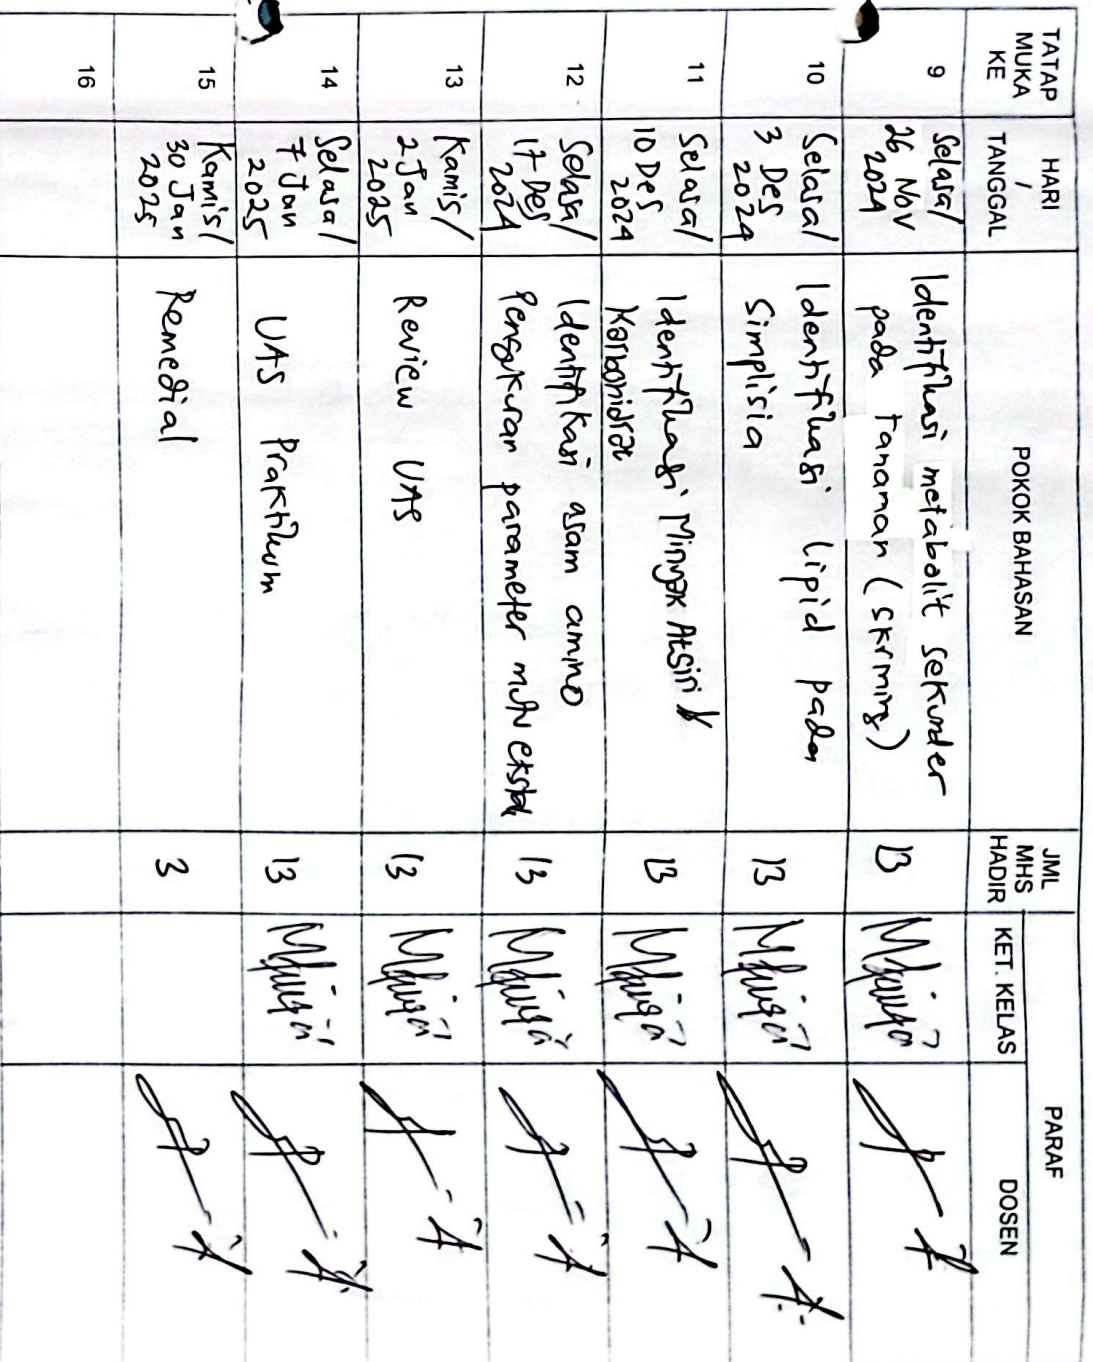 TATAP
MUKA
KE
HARI
/
TANGGAL
POKOK BAHASAN
JML
MHS
HADIR
PARAF
KET. KELAS
DOSEN
9
Selasa/
26 Nov
2024
Identifikasi metabolit sekunder
pada Tanaman (skrining)
13
10
Selasa/
3 Des
2024
Identifikasi lipid pada
Simplisia
13
11
Selasa/
10 Des
2024
Identifikasi Minyak Atsiri &
Karbohidrat
13
12
Selasa/
17 Des
2024
Identifikasi asam amino
Pengukuran parameter mutu ekstrak
13
13
Kamis/
2 Jan
2025
Review UAS
13
14
Selasa/
7 Jan
2025
UAS Praktikum
13
15
Kamis/
30 Jan
2025
Remedial
3
16